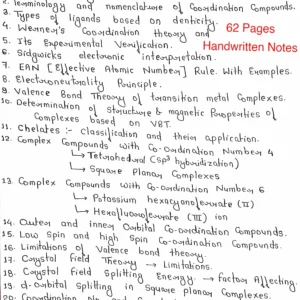 2. Terminology and nomenclature of Coordination Compounds.
3. Types of ligands based on denticity.
4. Werner's Coordination theory and
5. Its Experimental Verification.
6. Sidgwicks electronic interpretation.
7. EAN [Effective Atomic Number] Rule With Examples.
8. Electroneutrality Principle.
9. Valence Bond Theory of transition metal Complexes.
10. Determination of Structure & magnetic Properties of
Complexes based on VBT
11. Chelates :- classification and their application.
12. Complex Compounds with Co-Ordination Number 4
↳ Tetrahedral (Sp³ hybridization)
↳ Square Planar Complexes
13. Complex Compounds with Co-ordination Number 6
↳ Potassium hexacyanoferrate (II)
↳ Hexafluoroferrate (III) ion
14. Outer and inner Orbital Co-ordination Compounds.
15. Low Spin and high Spin Co-ordination Compounds.
16. Limitations of Valence bond theory.
17. Crystal field Theory → Limitations.
18. Crystal field Splitting Energy → factor Affecting
19. d-orbital splitting in Square planar complexes.
62 Pages
Handwritten Notes